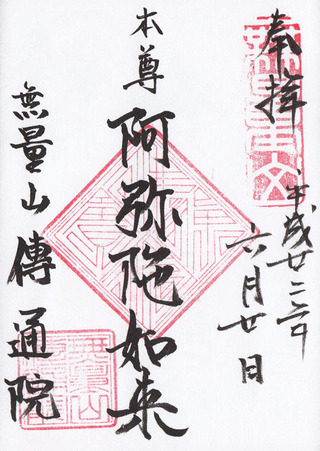 奉拝
平成廿二年
六月廿日
本尊
阿弥陀如来
無量山傳通院